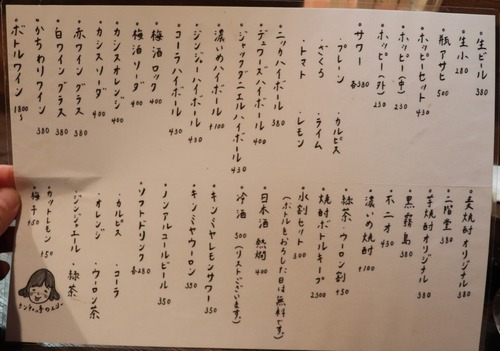 ・生ビール 380
・生小 280
・瓶アサヒ 500
・ホッピーセット 430
・ホッピー(中) 230
・ホッピー(外) 230
・サワー 各380
・プレーン ・カルピス
・ざくろ ・ライム
・トマト ・レモン
・ニッカハイボール 380
・デュワーズハイボール 400
・ジャックダニエルハイボール 430
・濃いめハイボール +100
・ジンジャーハイボール 430
・コーラハイボール 430
・梅酒ロック 400
・梅酒ソーダ 400
・カシスオレンジ 400
・カシスソーダ 400
・赤ワイングラス 380
・白ワイングラス 380
・かちわりワイン 380
・ボトルワイン 1800〜
・麦焼酎オリジナル 380
・二階堂 380
・芋焼酎オリジナル 380
・黒霧島 380
・不二才 430
・濃いめ焼酎 +100
・緑茶・ウーロン割 +50
・焼酎ボトルキープ 2500
・水割セット 300
(ボトルをおろした日は無料です。)
・日本酒 熱燗 400
・冷酒 500
(リストございます。)
・キンミヤレモンサワー 350
・キンミヤウーロン 350
・ノンアルコールビール 350
・ソフトドリンク 各280
・カルピス ・コーラ
・オレンジ ・ウーロン茶
・ジンジャエール ・緑茶
・カットレモン +50
・梅干 +50